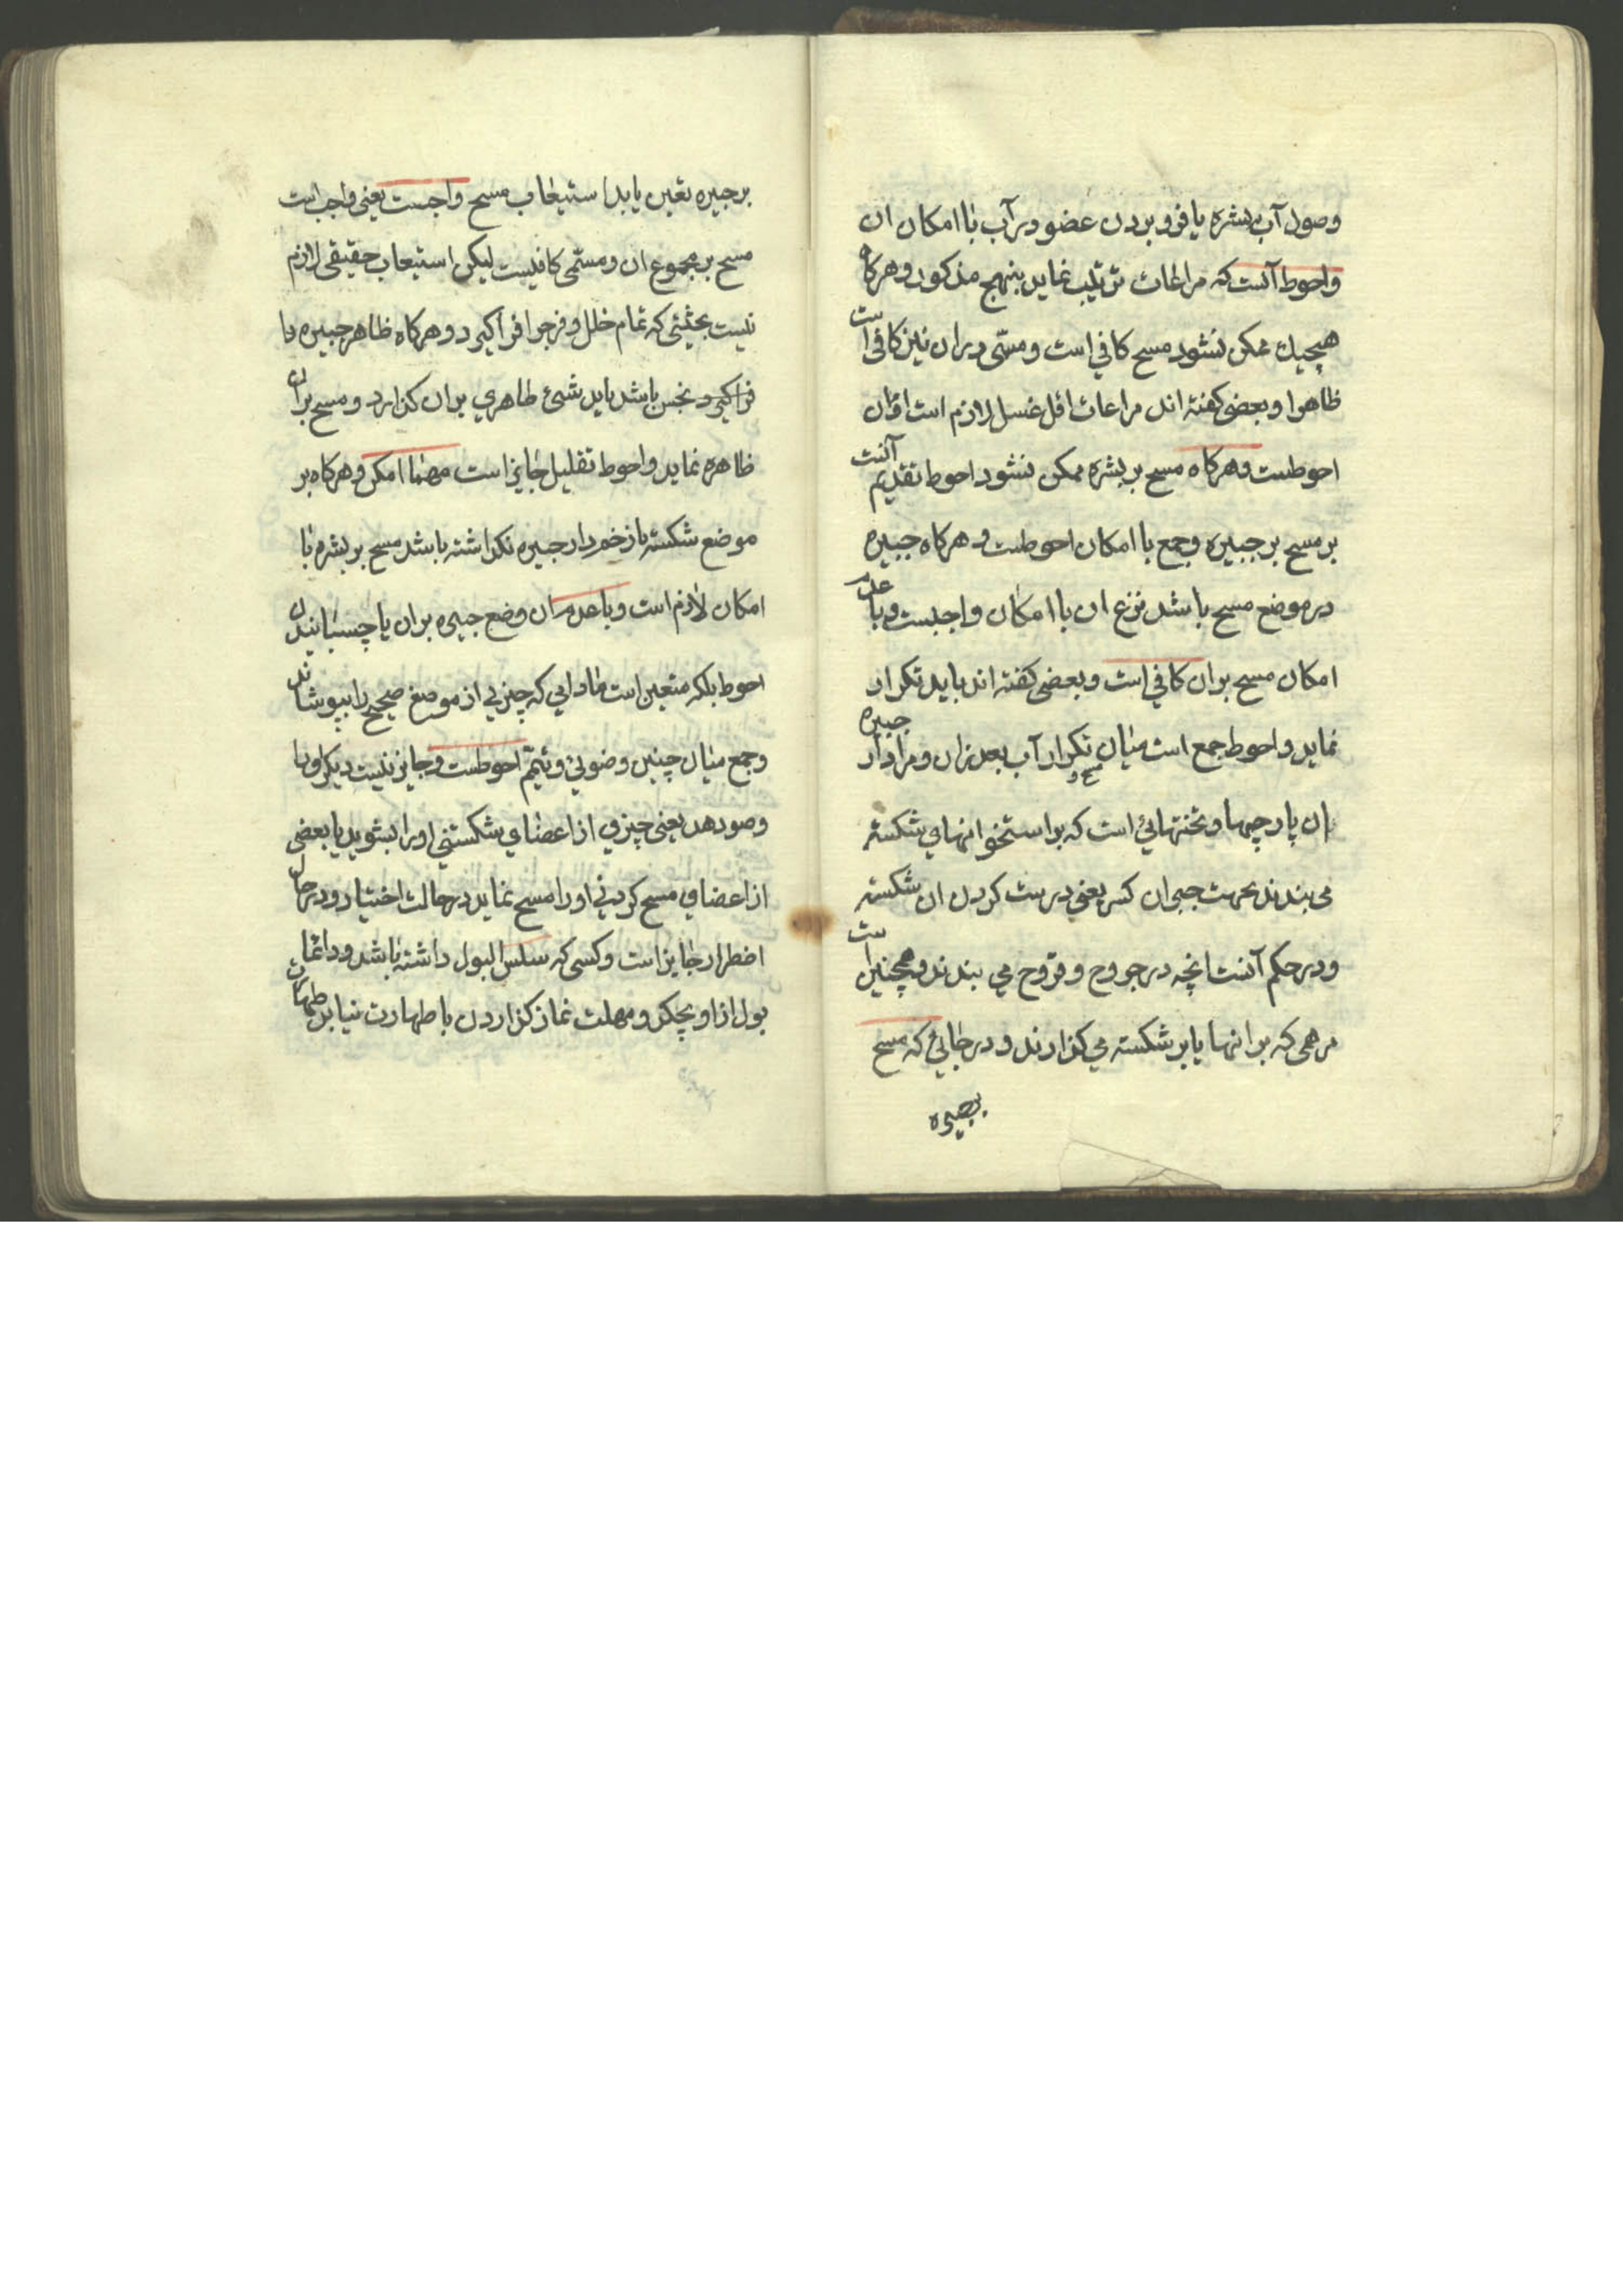 وصول آب ببشره یا فرو بردن عضو در آب با امکان ان
و احوط آنست که مراعات ترتیب نماید بنهج مذکور و هرکاه
هیچیك ممکن نشود مسح کافی است و مسمّی در ان نیز کافی است
ظاهرا و بعضی کفته اند مراعات اقل غسل لازم است و ان
احوطست و هرکاه مسح بر بشره ممکن نشود احوط تقدیم آنست
بر مسح بر جبیره و جمع با امکان احوطست و هرکاه جبیره
در موضع مسح باشد نزع ان با امکان واجبست و با عدم
امکان مسح بران کافی است و بعضی کفته اند باید تکرار
نماید و احوط جمع است میان مسح و تکرار آب بعد ازان و مراد از جبیره
ان پارچها و تختهائی است که بر استخوانهای شکسته
می بندند بجهت جبران کسر یعنی درست کردن ان شکسته
و در حکم آنست انچه در جروح و قروح می بندند و همچنین است
مرهمی که بر انها یا بر شکسته می کذارند و در جائی که مسح
بجبیره
بر جبیره تعین یابد استیعاب مسح واجبست یعنی واجب است
مسح بر مجموع ان و مسمّی کافی نیست لیکن استیعاب حقیقی لازم
نیست بحیثیتی که تمام خلل و فرج را فرا کیرد و هرکاه ظاهر جبیره را
فرا کیرد نجس باشد باید شیئ طاهری بران کذارد و مسح بران
ظاهره نماید و احوط تقلیل جایز است مهما امکن و هرکاه بر
موضع شکسته یا زخم دار جبیره نکذاشته باشد مسح بر بشره با
امکان لازم است و با عدم ان وضع جبیره بران یا چسبانیدن
احوط بلکه متعین است مادامی که چیزی از موضع صحیح را نپوشاند
و جمع میان چنین وضوئی و تیمّم احوطست و جایز نیست دیکر او را
وضو دهد یعنی چیزی از اعضای شستنی او را بشوید یا بعضی
از اعضای مسح کردنی او را مسح نماید در حالت اختیار و در حال
اضطرار جایز است و کسی که سلس البول داشته باشد و دائما
بول از او بچکد و مهلت نماز کذاردن با طهارت نیابد